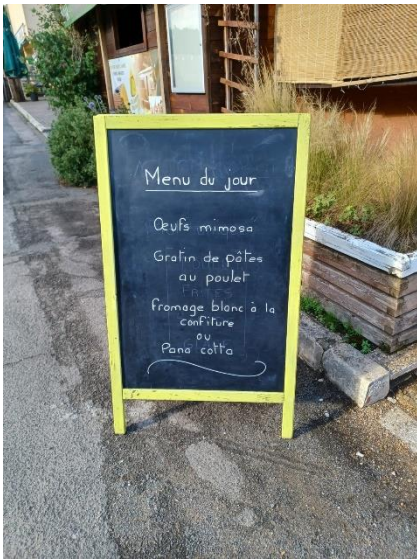 Menu du jour
Œufs mimosa
Gratin de pâtes
au poulet
fromage blanc à la
confiture
ou
Pana cotta